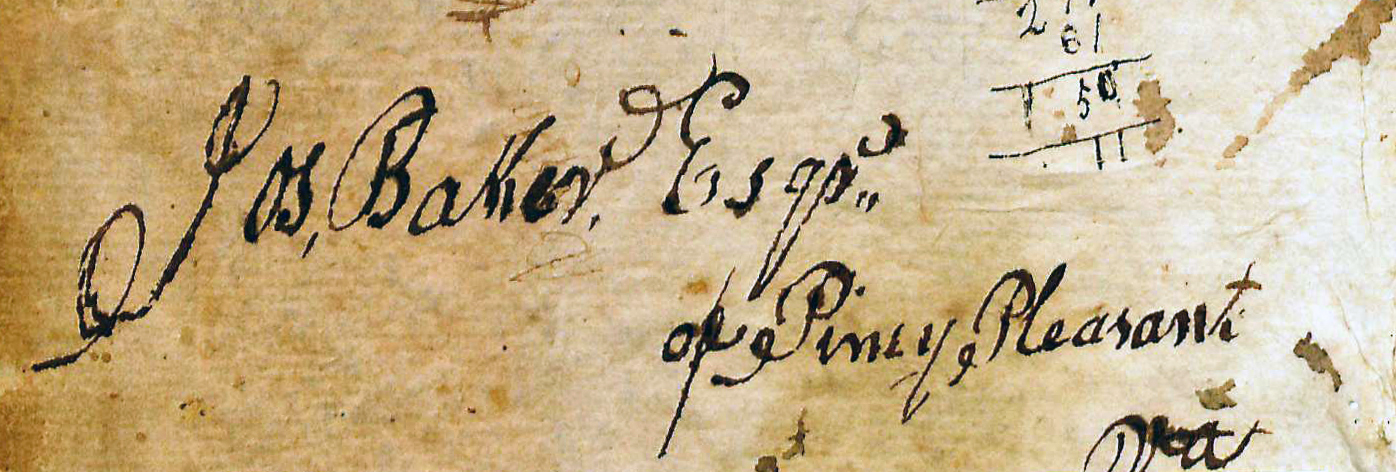 61
1 50
11
Jos, Baker, Esqr.,
of Piney Pleasant
Va